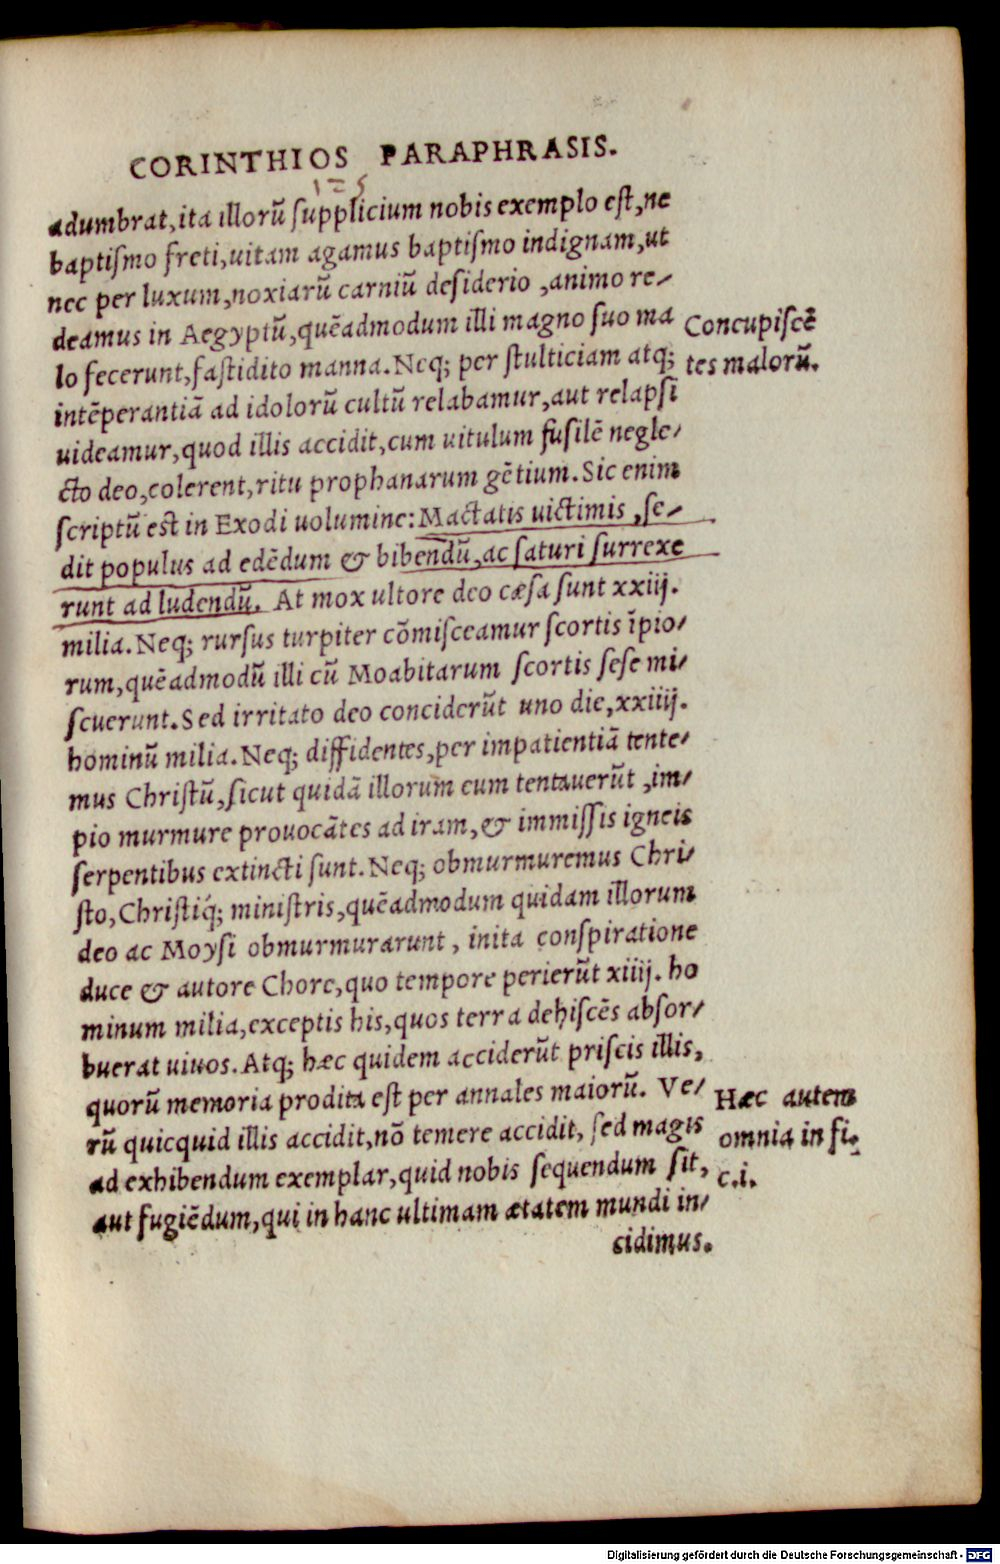 CORINTHIOS PARAPHRASIS.
125
adumbrat,ita illorū ſupplicium nobis exemplo eſt,ne
baptiſmo freti,uitam agamus baptiſmo indignam,ut
nec per luxum,noxiarū carniū deſiderio ,animo re/
deamus in Aegyptū,quēadmodum illi magno ſuo ma
Concupiſcē
lo fecerunt,faſtidito manna.Neq; per ſtulticiam atq;
tes malorū.
intēperantiā ad idolorū cultū relabamur,aut relapſi
uideamur,quod illis accidit,cum uitulum fuſilē negle/
cto deo,colerent,ritu prophanarum gētium.Sic enim
ſcriptū est in Exodi uolumine:Mactatis uictimis ,ſe/
dit populus ad edēdum & bibendū,ac ſaturi ſurrexe
runt ad ludendū. At mox ultore deo cæſa ſunt xxiij.
milia.Neq; rurſus turpiter cōmiſceamur ſcortis īpio/
rum,quēadmodū illi cū Moabitarum ſcortis ſeſe mi/
ſcuerunt.Sed irritato deo conciderūt uno die,xxiiij.
hominū milia.Neq; diffidentes,per impatientiā tente/
mus Chriſtū,ſicut quidā illorum eum tentauerūt ,im/
pio murmure prouocātes ad iram,& immiſſis igneis
ſerpentibus extincti ſunt.Neq; obmurmuremus Chri/
ſto,Chriſtiq́; miniſtris,quēadmodum quidam illorum
deo ac Moyſi obmurmurarunt, inita conſpiratione
duce & autore Chore,quo tempore perierūt xiiij. ho
minum milia,exceptis his,quos terra dehiſcēs abſor/
buerat uiuos.Atq; hæc quidem acciderūt priſcis illis,
quorū memoria prodita eſt per annales maiorū. Ve/
Hæc autem
rū quicquid illis accidit,nō temere accidit, ſed magis
omnia in fi.
ad exhibendum exemplar,quid nobis ſequendum ſit,
c.i.
aut fugiēdum,qui in hanc ultimam ætatem mundi in/
cidimus.
Digitalisierung gefördert durch die Deutsche Forschungsgemeinschaft - DFG